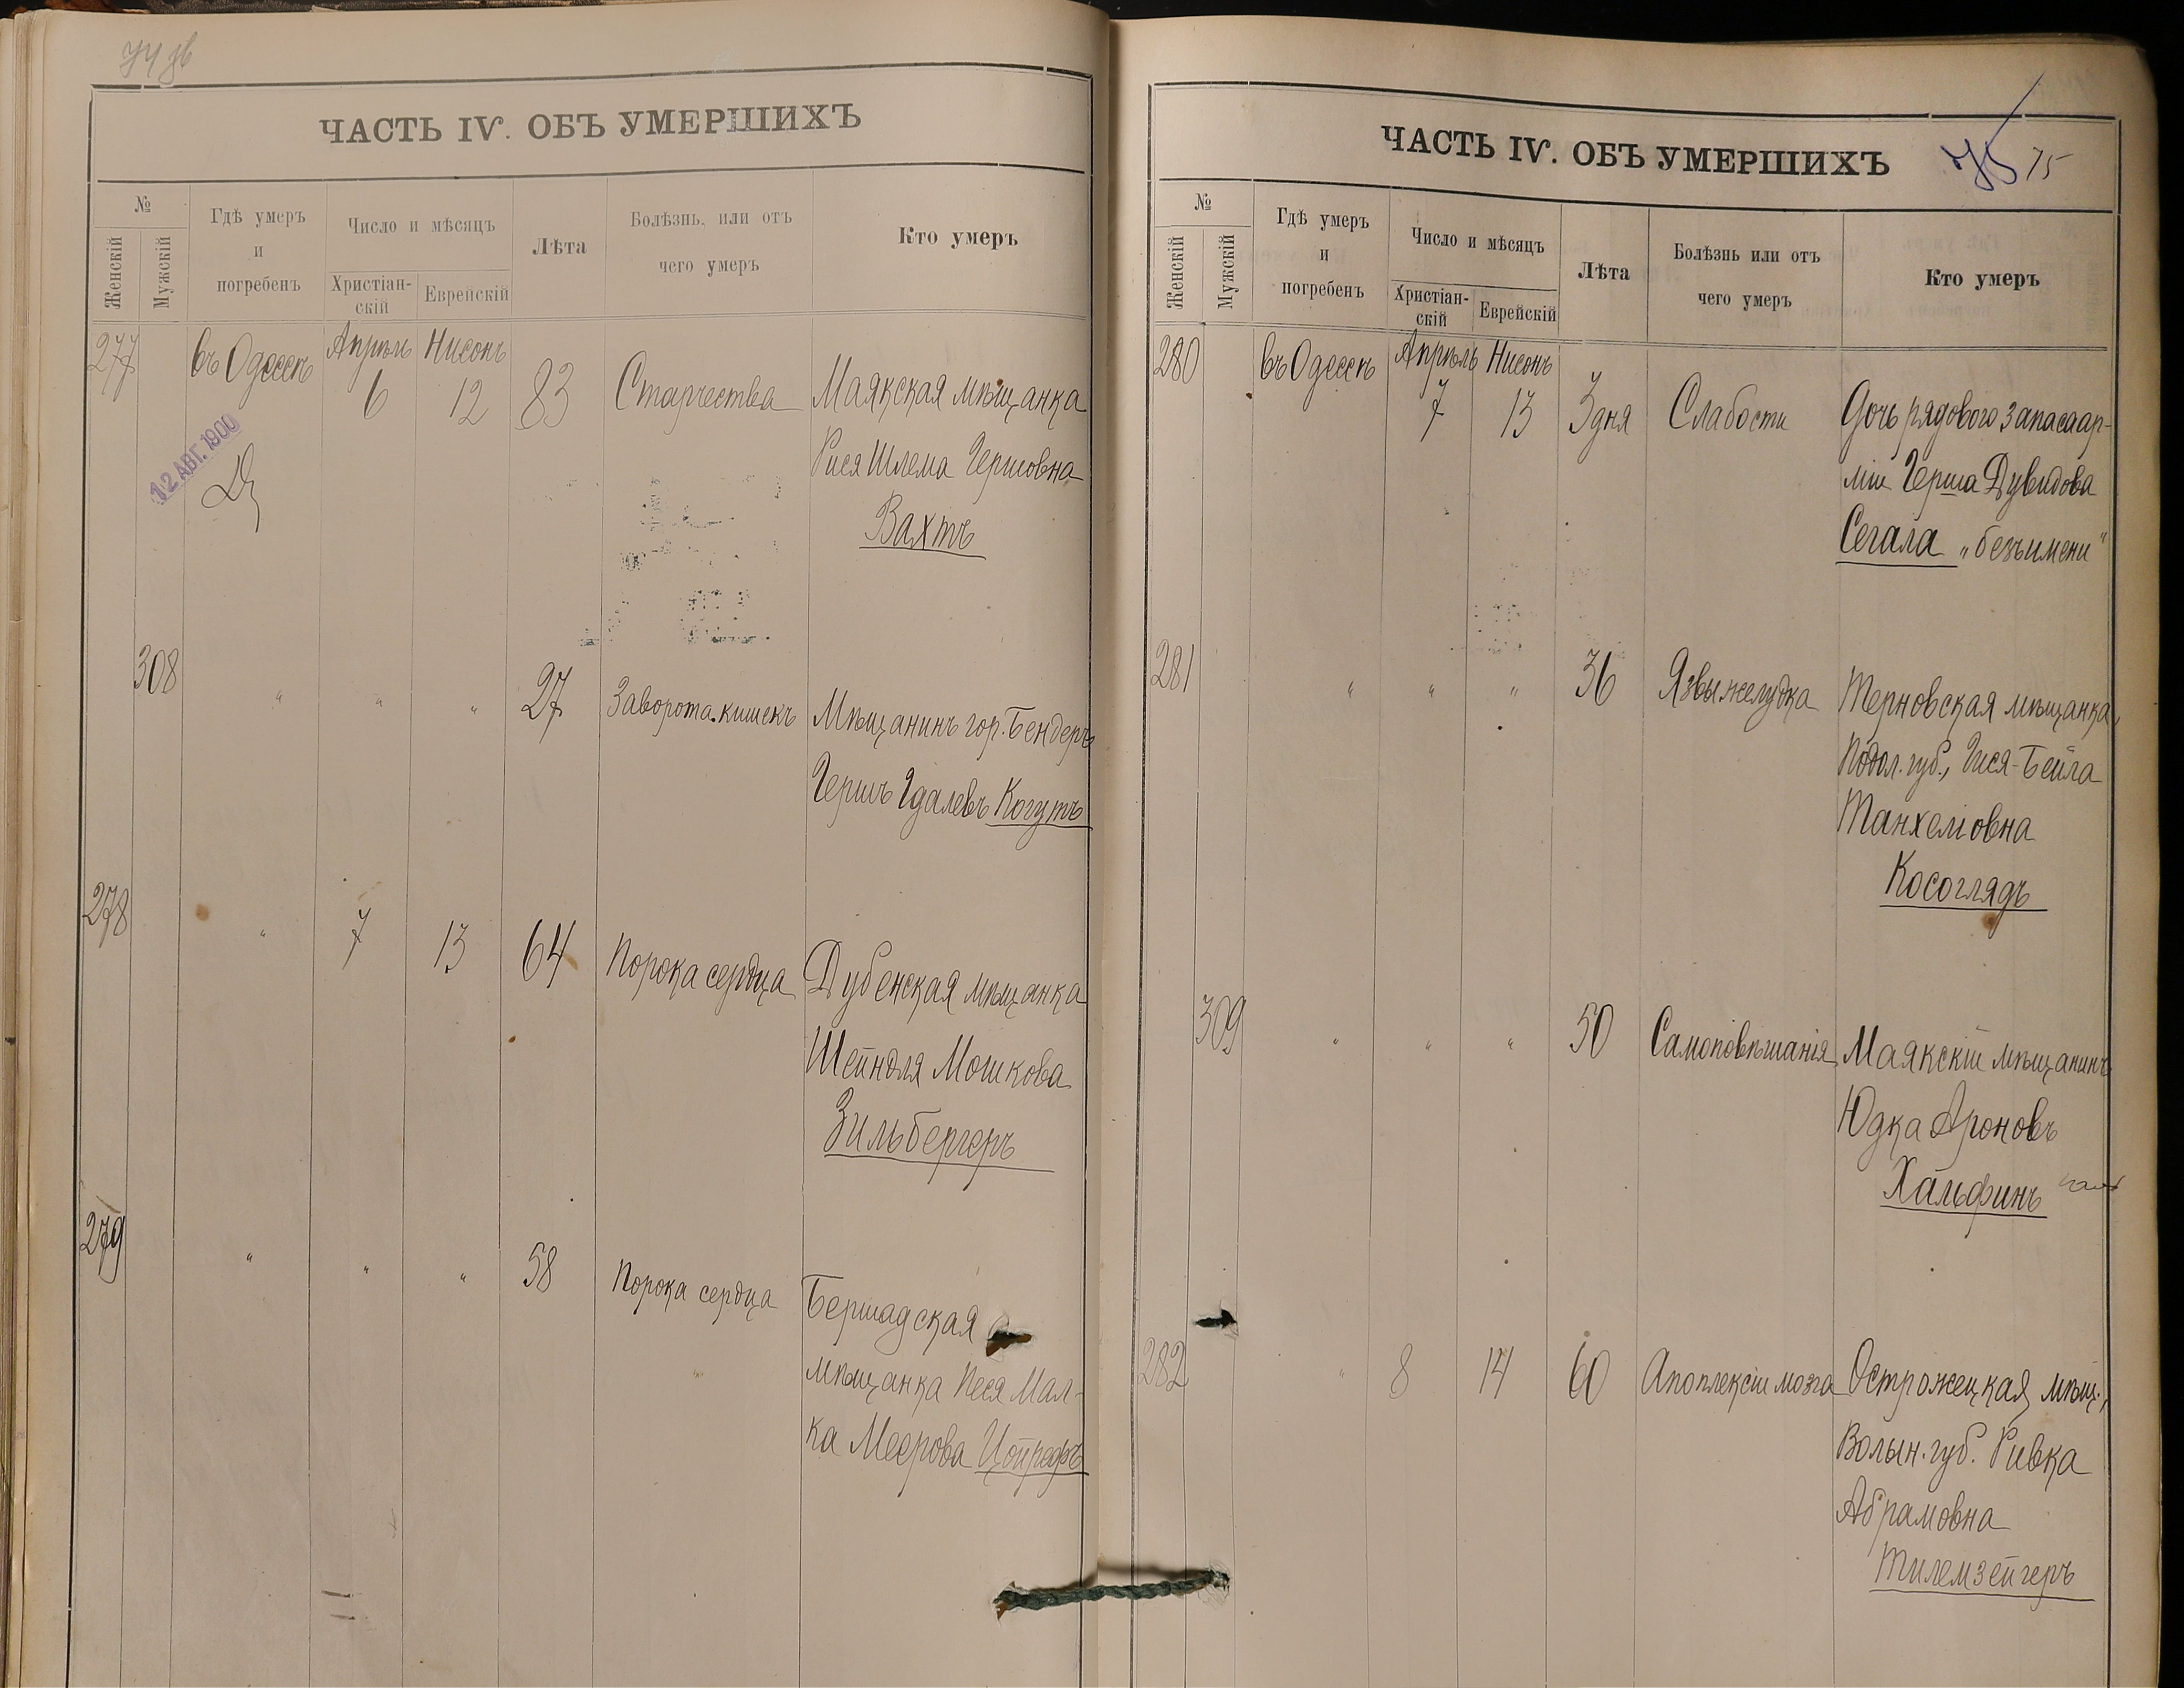 ЧАСТЬ IV. ОБЪ УМЕРШИХЪ
№
Женскій
Мужскій
Гдѣ умеръ
и
погребенъ
Число и мѣсяцъ
Христіан-
скій
Еврейскій
Лѣта
Болѣзнь, или отъ
чего умеръ
Кто умеръ
277 въ Одессѣ Апрѣль Нисонъ
6 12 83 Старчества Маякская мѣщанка
Рися Шлема Гершовна
Вахтъ
12 АВГ. 1900
308 " " " 27 Заворота кишекъ Мѣщанинъ гор. Бендеръ
Гершъ Гдалевъ Когутъ
278 " 7 13 64 Порока сердца Дубенская мѣщанка
Шейндля Мошкова
Зильбергеръ
279 " " " 58 Порока сердца Бершадская
мѣщанка Песя Мал-
ка Меерова
ЧАСТЬ IV. ОБЪ УМЕРШИХЪ
75 75
№
Женскій
Мужскій
Гдѣ умеръ
и
погребенъ
Число и мѣсяцъ
Христіан-
скій
Еврейскій
Лѣта
Болѣзнь или отъ
чего умеръ
Кто умеръ
280 въ Одессѣ Апрѣль Нисонъ
7 13 3 дня Слабости Дочь рядового запаса ар-
міи Герша Дувидова
Сегала „безъ имени"
281 " " " 36 Язвы желудка Терновская мѣщанка
Подол. губ., Гися-Бейла
Танхелiовна
Косоглядъ
309 " " " 50 Самоповѣшанія Маякскій мѣщанинъ
Юдка Ароновъ
Хальфинъ
282 " 8 14 60 Апоплексіи мозга Острожецкая мѣщ.,
Волын. губ. Ривка
Абрамовна
Тилемзейгеръ